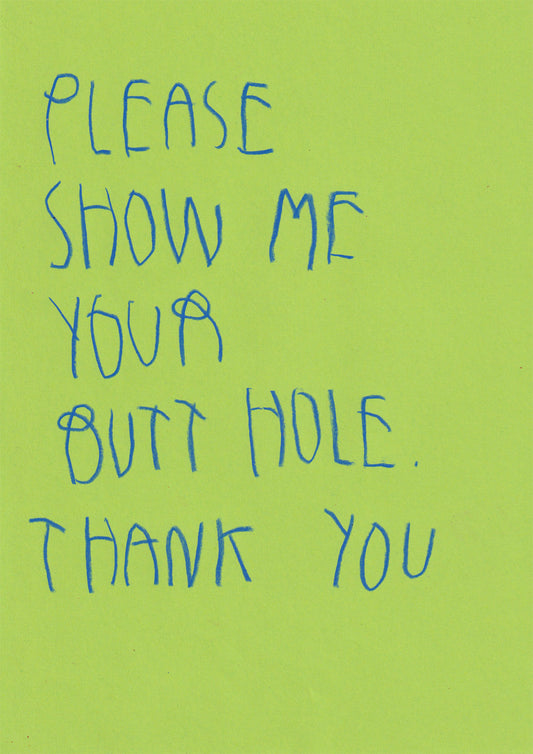 PLEASE
SHOW ME
YOUR
BUTT HOLE.
THANK YOU